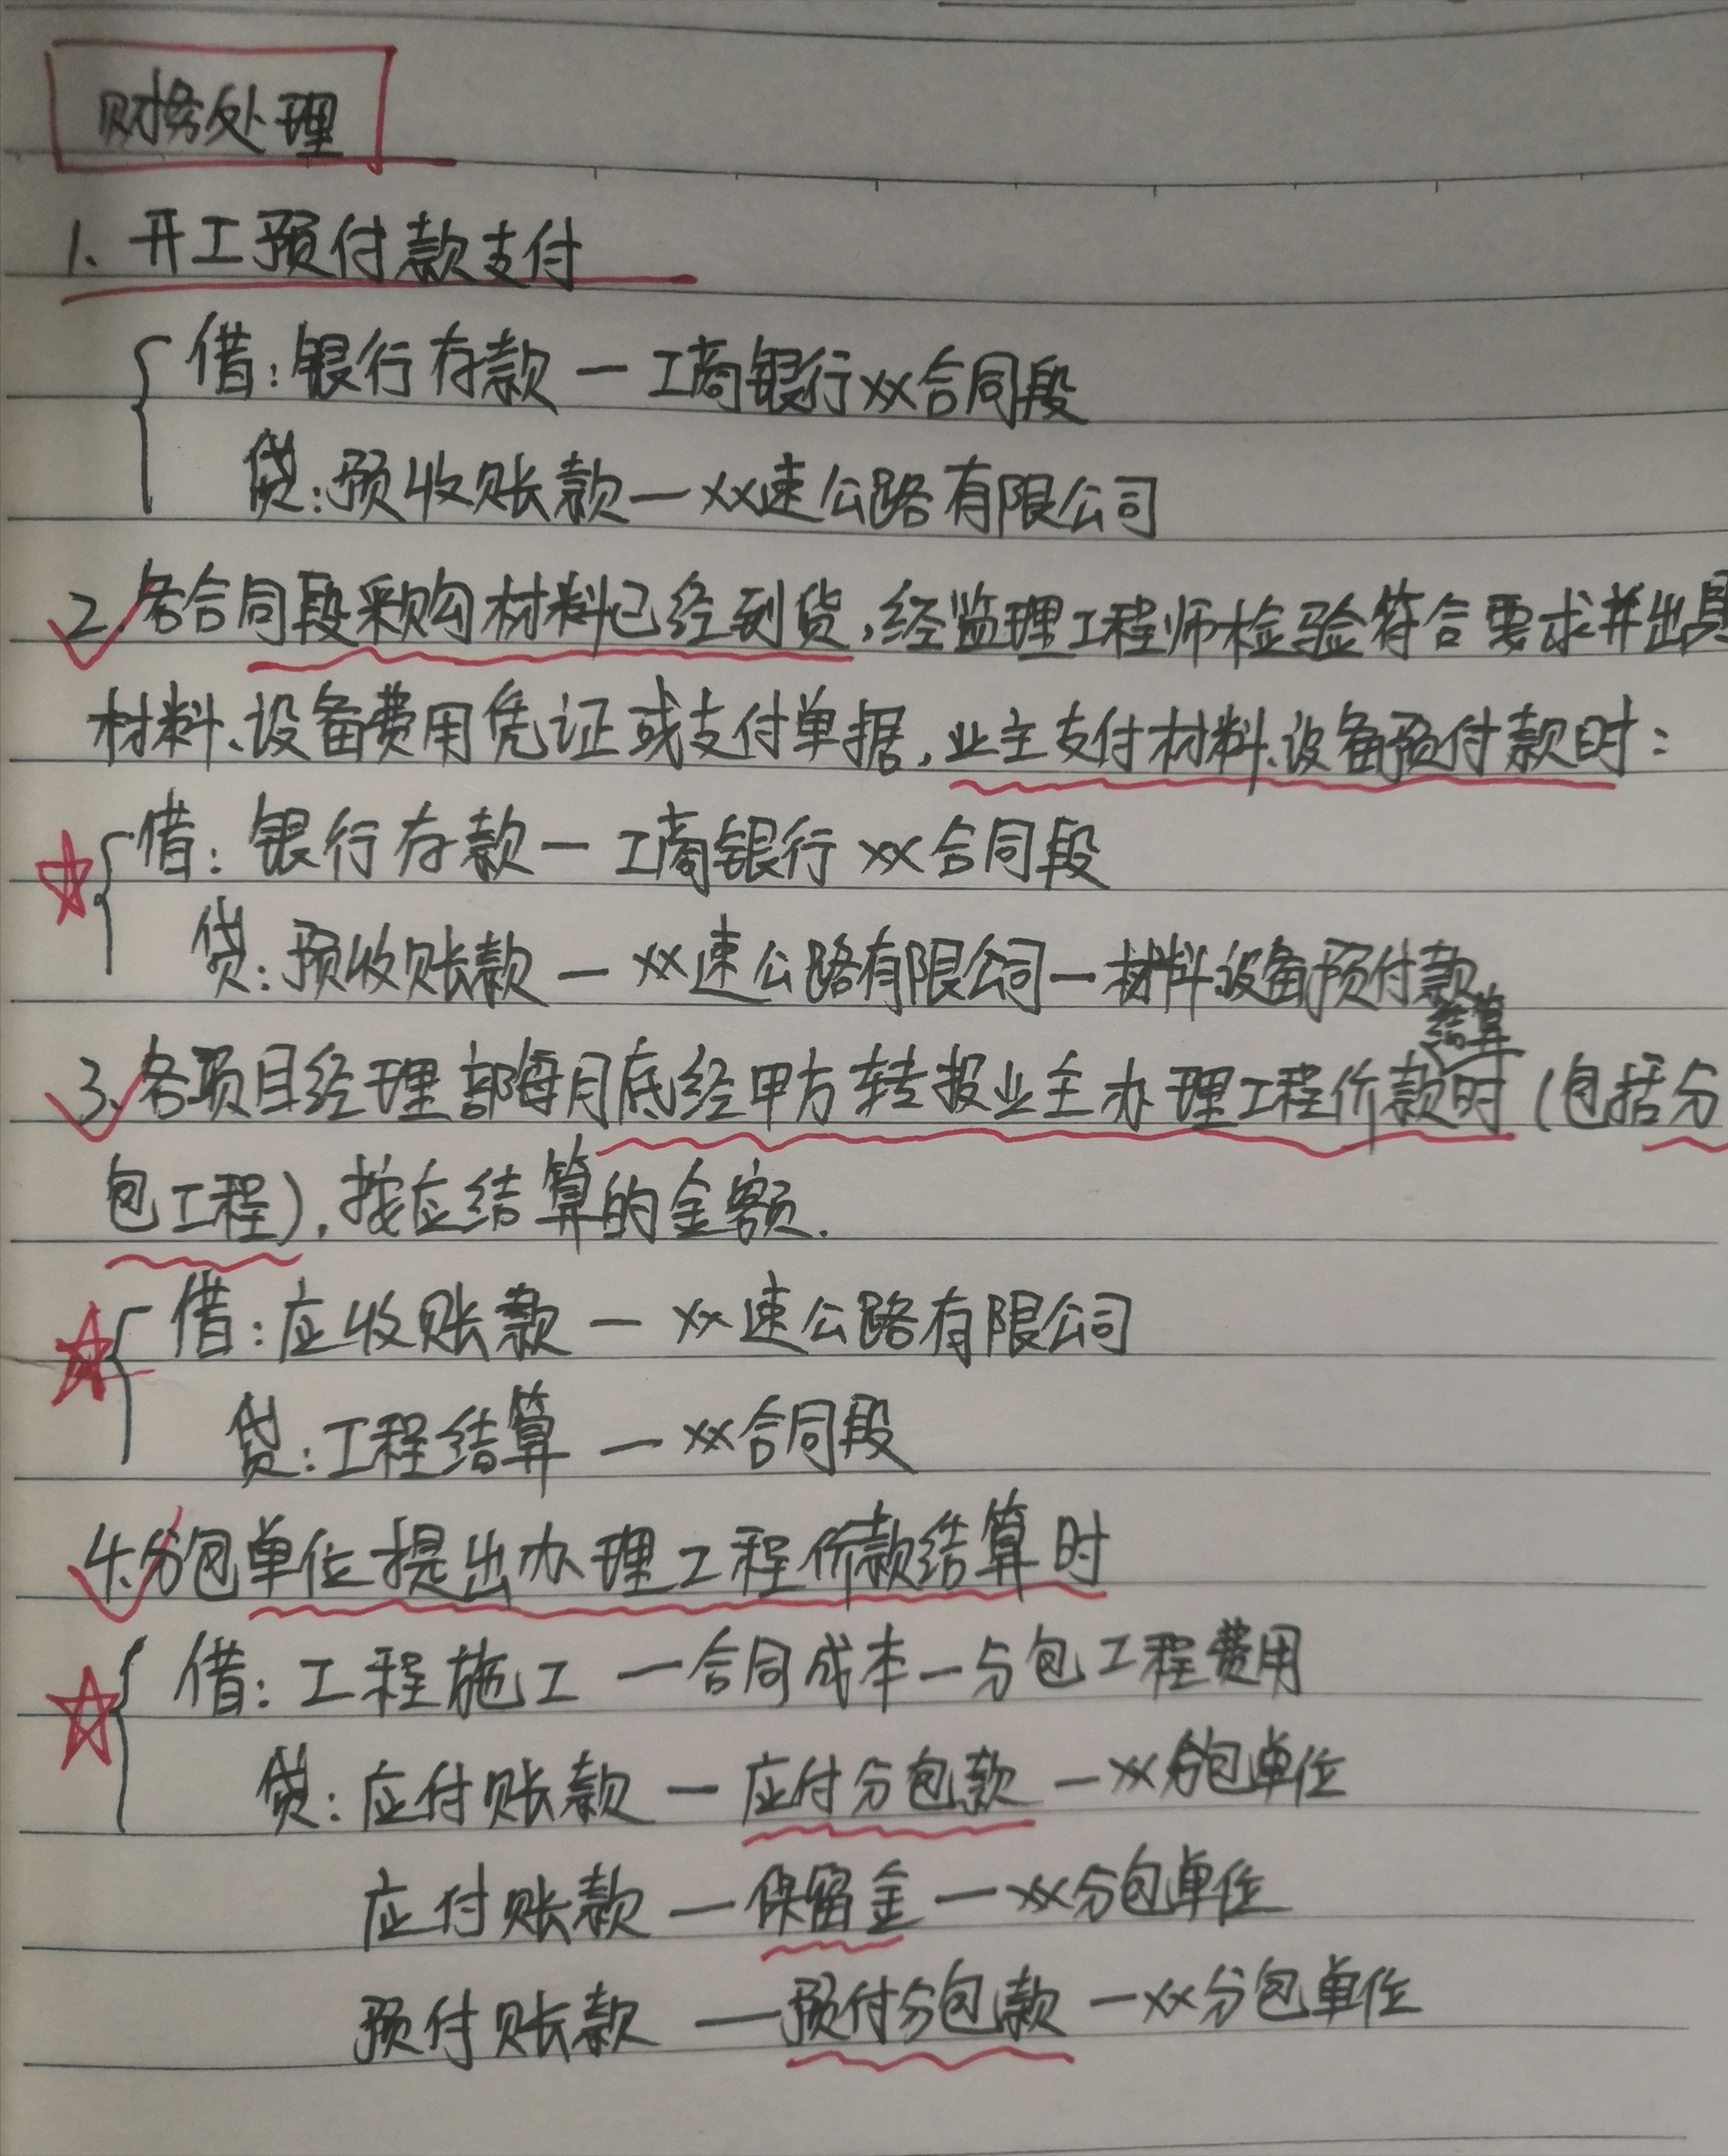 财务处理
1、开工预付款支付
借:银行存款—工商银行××合同段
贷:预收账款—××速公路有限公司
2、各合同段采购材料已经到货,经监理工程师检验符合要求并出具
材料、设备费用凭证或支付单据,业主支付材料、设备预付款时:
借:银行存款—工商银行××合同段
贷:预收账款—××速公路有限公司—材料、设备预付款
3、各项目经理部每月底经甲方转报业主办理工程价款结算时(包括分
包工程),按应结算的金额.
借:应收账款—××速公路有限公司
贷:工程结算—××合同段
4、分包单位提出办理工程价款结算时
借:工程施工—合同成本—分包工程费用
贷:应付账款—应付分包款—××分包单位
应付账款—保留金—××分包单位
预付账款—预付分包款—××分包单位